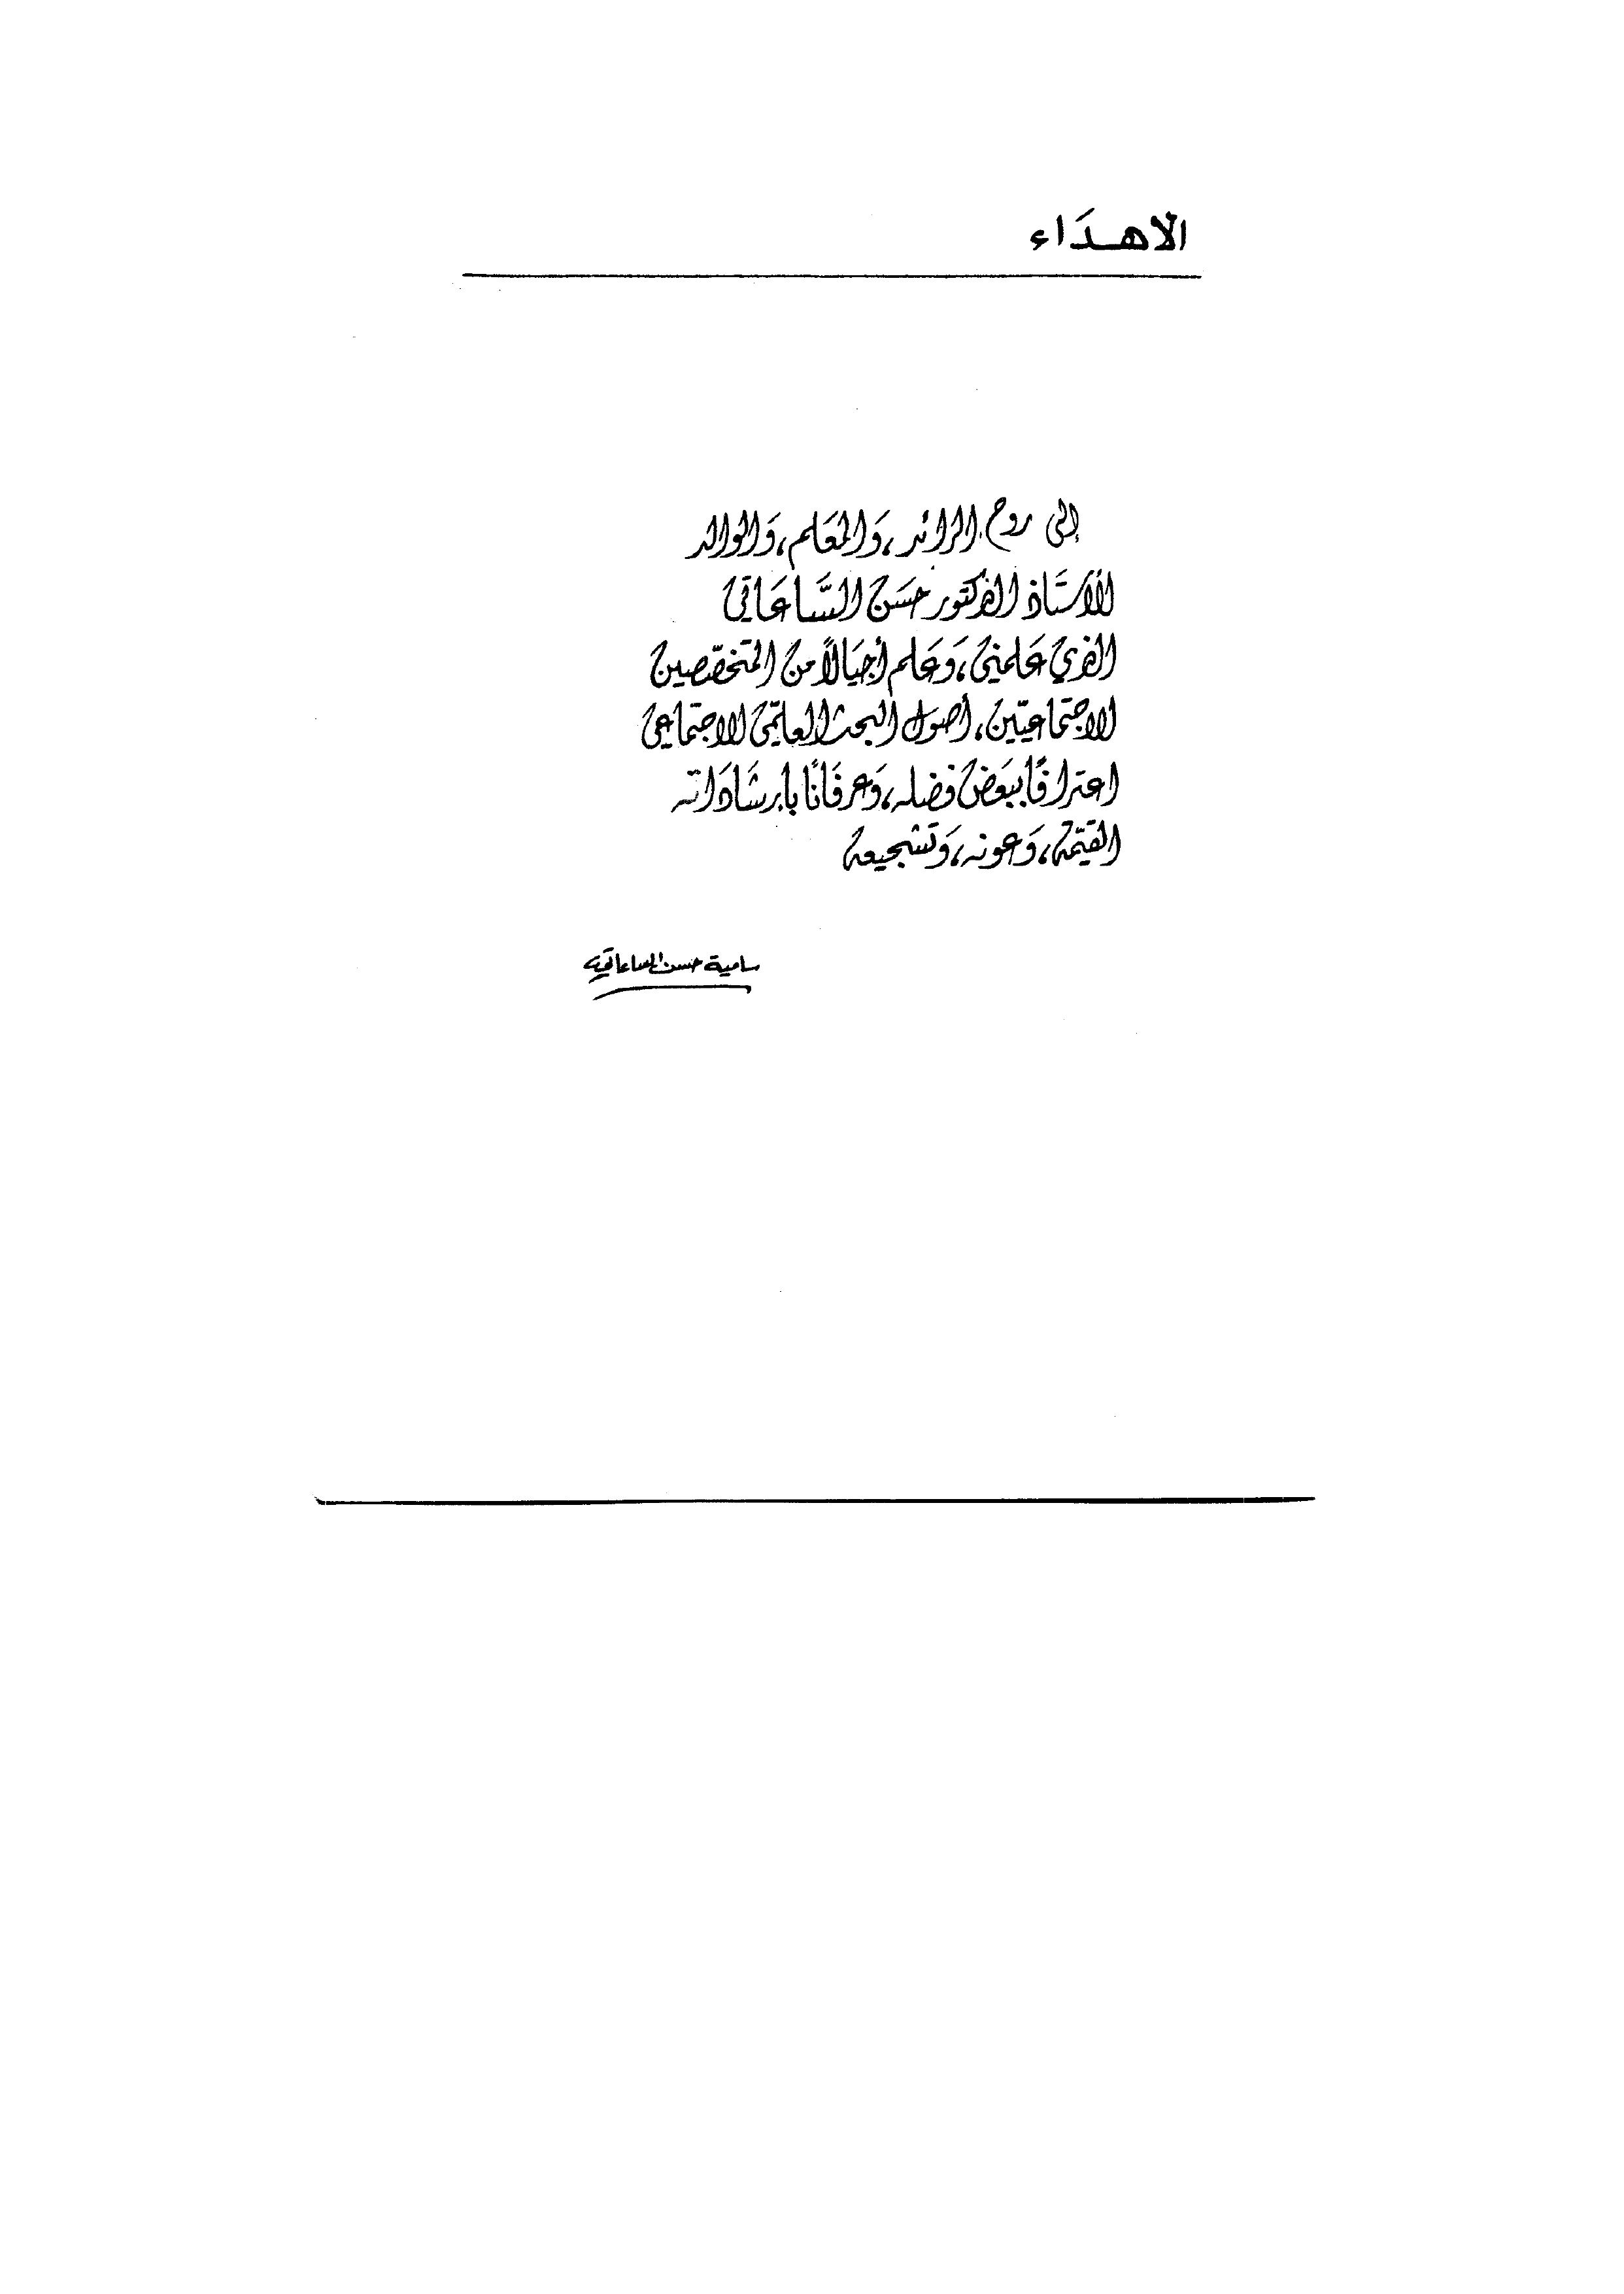 الاهـدَاء
إلى روح الرائد، وَالمعَلم، وَالوالد
الأستَاذ الدكتور حسَن السَّاعَاتي
الذي عَلمني، وَعَلم أجيَالاً من المتخصّصين
الاجتماعيّين، أصول البحث العلمّي الاجتماعي
اعترافًا ببعَض فضله، وَعرفَانًا بإرشَادَاته
القيّمة، وَعونه، وَتشجيعه
سامية حسن الساعاتي